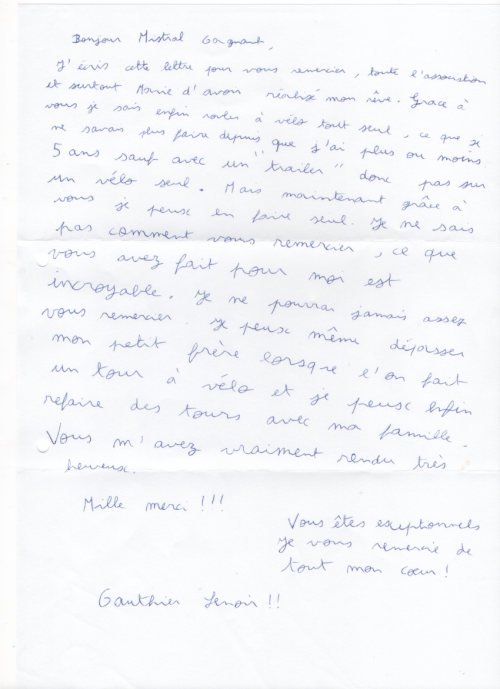 Bonjour Mistral Gagnant,
J'écris cette lettre pour vous remercier, toute l'association
et surtout Marie d'avoir réalisé mon rêve. Grace à
vous je sais enfin rouler à vélo tout seul, ce que je
ne savais plus faire depuis que j'ai plus ou moins
5 ans sauf avec un "trailer" donc pas sur
un vélo seul. Mais maintenant grâce à
vous je peux en faire seul. Je ne sais
pas comment vous remercier, ce que
vous avez fait pour moi est
incroyable. Je ne pourrai jamais assez
vous remercier. Je peux même dépasser
mon petit frère lorsque l'on fait
un tour à vélo et je peux enfin
refaire des tours avec ma famille.
Vous m'avez vraiment rendu très
heureux.
Mille merci !!!
Vous êtes exceptionnels
Je vous remercie de
tout mon cœur !
Gauthier Lenoir !!